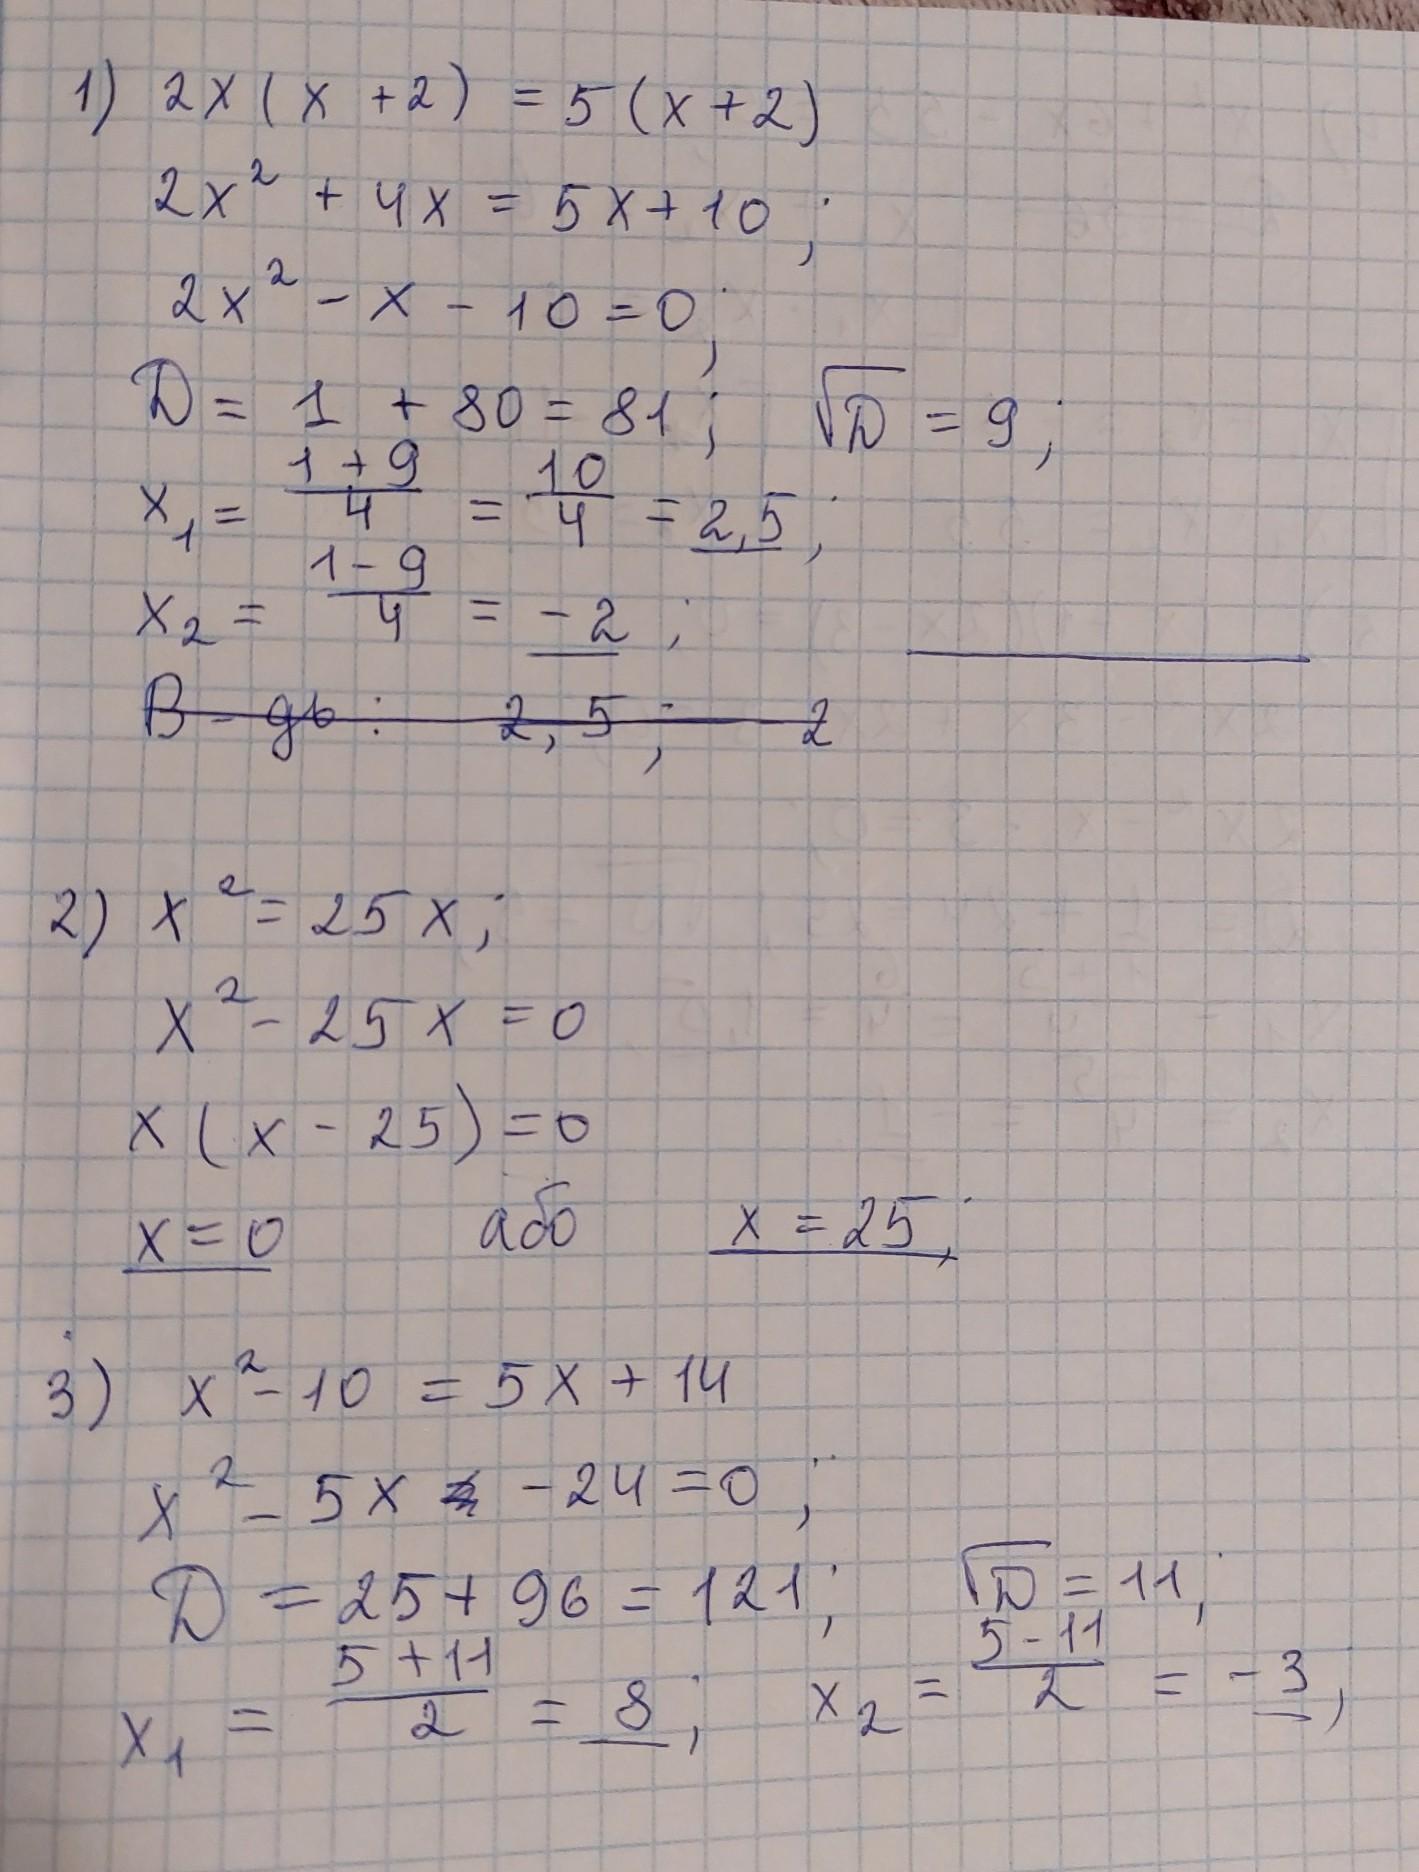 1) 2x(x+2) = 5(x+2)
2x² + 4x = 5x+10;
2x² - x - 10 = 0;
D = 1 + 80 = 81; √D = 9;
x₁ = (1+9)/4 = 10/4 = 2,5;
x₂ = (1-9)/4 = -2;
В-дь: 2,5; -2
2) x² = 25x;
x² - 25x = 0
x(x - 25) = 0
x = 0 або x = 25;
3) x² - 10 = 5x + 14
x² - 5x - 24 = 0;
D = 25 + 96 = 121; √D = 11;
x₁ = (5+11)/2 = 8; x₂ = (5-11)/2 = -3;